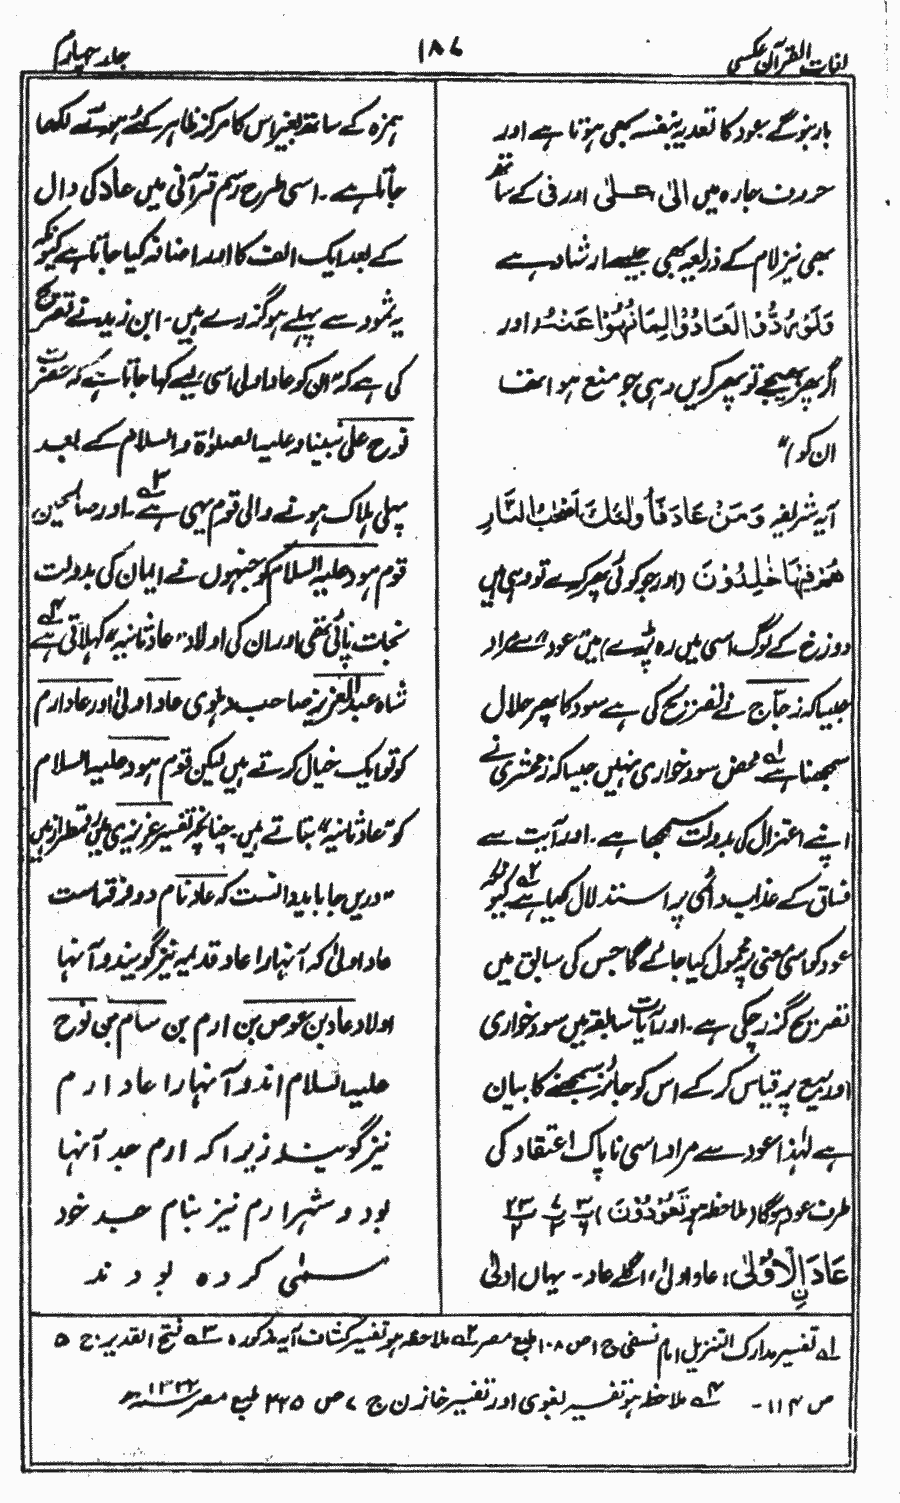 لغات القرآن عکسی
۱۸۷
جلد چہارم
بار بنو گے عود کا تعدیہ بنفسہ بھی ہوتا ہے اور
حروف جارہ میں الیٰ، عــلیٰ اور فی کے ساتھ
بھی نیز لام کے ذریعہ بھی جیسے ارشاد ہے
وَلَوْ رُدُّوْا لَعَادُوْا لِمَا نُهُوْا عَنْهُ، اور
اگر پھر بھیجے تو پھر کریں وہی جو منع ہوا تھا
ان کو)"
آیہ شریفہ وَمَنْ عَادَ فَاُولٰئِكَ اَصْحٰبُ النَّارِ
هُمْ فِيْهَا خٰلِدُوْنَ (اور جو کوئی پھر کرے تو وہی ہیں
دوزخ کے لوگ اسی میں رہ پڑے) میں "عود" سے مراد
جیسا کہ زجاج نے تصریح کی ہے سود کا پھر حلال
سمجھنا ہے ۱؎ محض سود خواری نہیں جیسا کہ زمخشری نے
اپنے اعتزال کی بدولت سمجھا ہے۔ اور آیت سے
فساق کے عذاب دائمی پر استدلال کیا ہے ۲؎ کیونکہ
عود کو اسی معنی پر محمول کیا جائے گا جس کی سابق میں
تصریح گزر چکی ہے۔ اور آیات سابقہ میں سود خواری
اور بیع پر قیاس کر کے اس کو جائز سمجھنے کا بیان
ہے لہٰذا عود سے مراد اسی ناپاک اعتقاد کی
طرف عود ہوگا (ملاحظہ ہو تَعُوْدُوْنَ)
عَادَ اۨلْاُوْلٰى؛ عاد اولیٰ، اگلے عاد۔ یہاں اولیٰ
ہمزہ کے ساتھ بغیر اس کا مرکز ظاہر کئے ہوئے لکھا
جاتا ہے۔ اسی طرح رسم قرآنی میں عاد کی دال
کے بعد ایک الف کا اور اضافہ کیا جاتا ہے کیونکہ
یہ ثمود سے پہلے ہو گزرے ہیں۔ ابن زید نے تصریح
کی ہے کہ "ان کو عاد اولی اسی لیے کہا جاتا ہے کہ حضرت
نوح علی نبینا وعلیہ الصلوٰۃ والسلام کے بعد
پہلی ہلاک ہونے والی قوم یہی ہے ۳؎۔ اور صالحین
قوم ہود علیہ السلام کو جنہوں نے ایمان کی بدولت
نجات پائی تھی اور ان کی اولاد "عاد ثانیہ" کہلاتی ہے ۴؎
شاہ عبدالعزیز صاحب دہلوی عاد اولیٰ اور عاد ارم
کو تو ایک خیال کرتے ہیں لیکن قوم ہود علیہ السلام
کو "عاد ثانیہ" بتاتے ہیں۔ چنانچہ تفسیر عزیزی میں رقمطراز ہیں
"دریں جا باید دانست کہ عاد نام دو فرقہاست
عاد اولیٰ کہ آنہا را عاد قدیمہ نیز گویند و آنہا
اولاد عاد بن عوص بن ارم بن سام بن نوح
علیہ السلام اند و آنہا را عاد ارم
نیز گویند زیرا کہ ارم جد آنہا
بود و شہر ارم نیز بنام جد خود
مسمیٰ کردہ بودند
۱؎ تفسیر مدارک التنزیل امام نسفی ج ۱ ص ۱۰۸ طبع مصر ۲؎ ملاحظہ ہو تفسیر کشاف آیہ مذکورہ ۳؎ فتح القدیر ج ۵
ص ۱۱۴۔ ۴؎ ملاحظہ ہو تفسیر بغوی اور تفسیر خازن ج ۷ ص ۲۲۵ طبع مصر